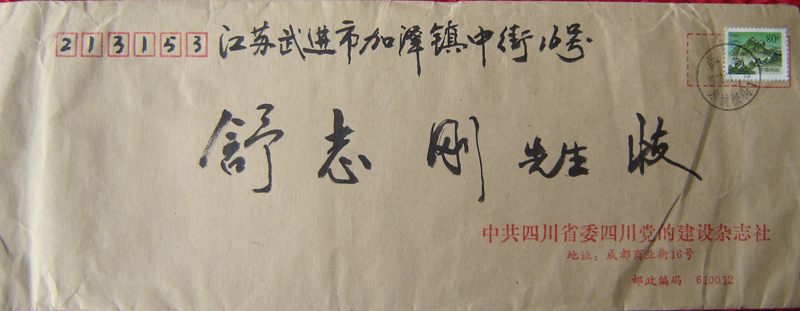 213153 江苏武进市加泽镇中街16号
舒志刚 先生 收
中共四川省委四川党的建设杂志社
地址：成都商业街16号
邮政编码 610012
80分